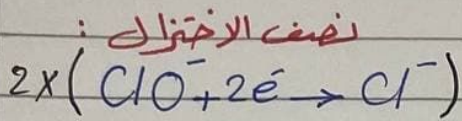 نصف الاختزال :
2x(ClO⁻+2é → Cl⁻)